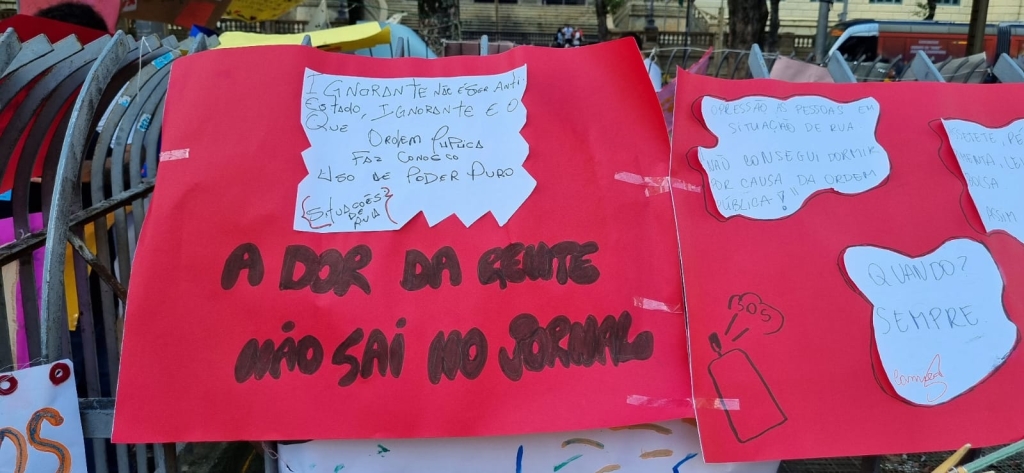 IGNORANTE NÃO É SER ANTI-
ESTADO, IGNORANTE E O
QUE
ORDEM PUPLICA
FAZ CONOSCO
USO DE PODER PURO
(SITUAÇÕES
DE
RUA)
A DOR DA GENTE
NÃO SAI NO JORNAL
OPRESSÃO AS PESSOAS EM
SITUAÇÃO DE RUA
NÃO CONSEGUI DORMIR
POR CAUSA DA ORDEM
PÚBLICA!!!
BOLSA
ASSIM
QUANDO?
SEMPRE
SOS
OS